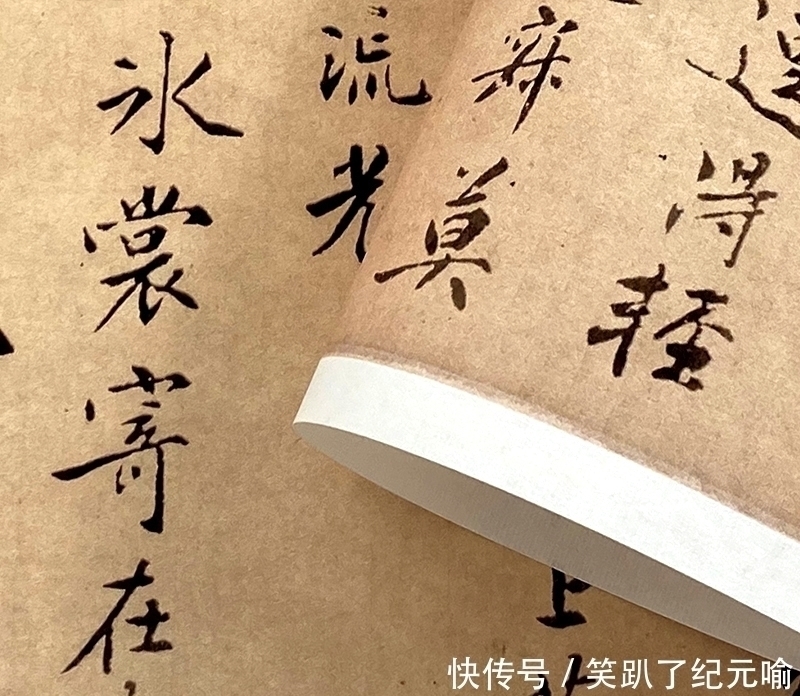 得輕
寐莫
上
流光
氷裳寄在
快传号 / 笑趴了纪元喻